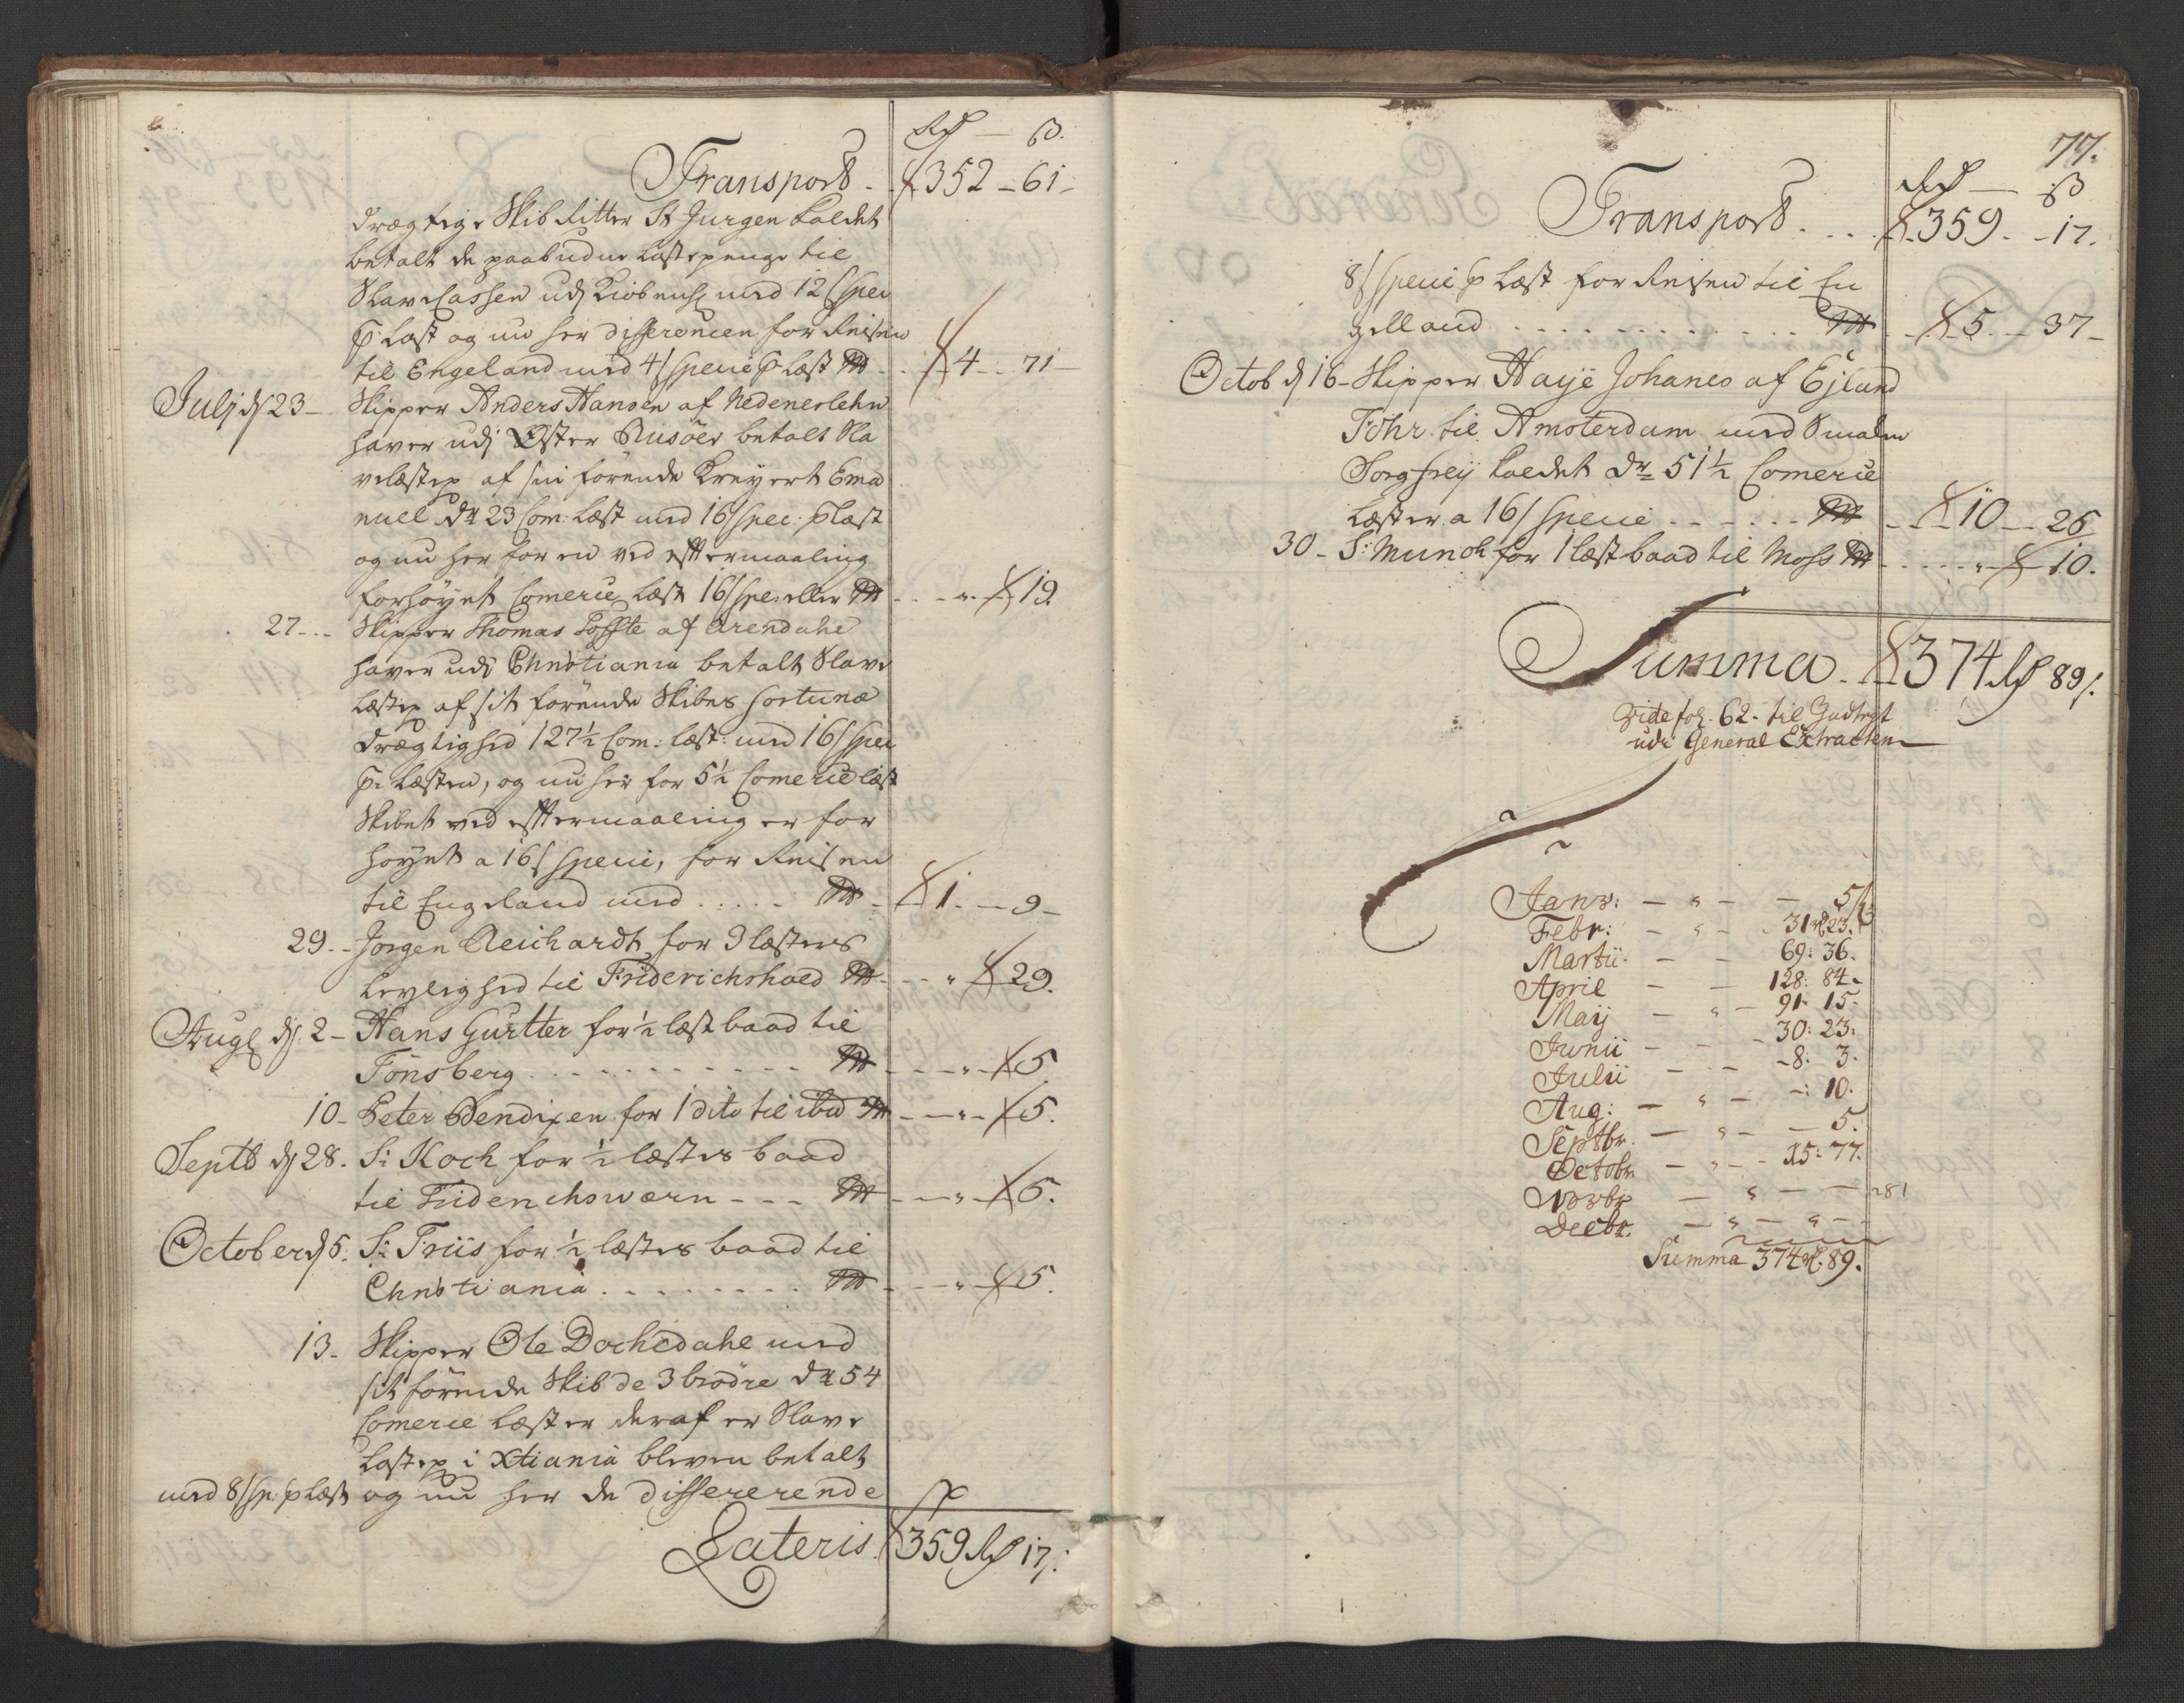 Rd — ß.
Transport. 352 – 61 –
drægtige Skib Ritter St Jurgen kaldet
betalt de paabudne Lastepenge til
Slave Cassen udj Kiøbenh. med 12 s Spec
p Læst og nu her differencen for Reisen
til Engeland med 4 s Specie p Læst 4 – 71 –
Julj d 23 – Skipper Anders Hansen af Nedeneslehn
haver udj Øster Riisöer betalt Sla
velæstep af sin förende Kreyert Ema
nuel dr 23 Com: Læst med 16 s Spec: p Læst
og nu her for en ved eftermaaling
forhöyet Comerce Læst 16 s Spe: eller 19.
27 – Skipper Thomas Toffte af Arendahl
haver udj Christiania betalt Slave
Læstep af sit förende Skibes Fortuna
drægtighed 127½ Com: Læst: med 16 s Spec
p. Læsten, og nu her for 5½ Comerce Læst
Skibet ved eftermaaling er for
höyet a 16 s Specie, for Reisen
til Engeland med ..... 1 – 9 –
29 – Jörgen Reichardt for 3 læsters
Leylighed til Friderichshald 29.
Aug d. 2 – Hans Gurtter for ½ læst baad til
Tönsberg .......... 5.
10 – Peter Bendixen for 1 dito til ibid 5.
Septb d 28. Sr Koch for ½ læsters baad
til Friderichswærn – – – 5.
October d 5. Sr Friis for ½ læsters baad til
Christiania ........ 5.
13 – Skipper Ole Dochedahl med
sit förende Skib de 3 brödre dr 54
Comerce Læster deraf er Slave
Lastep i Xtiania bleven betalt
med 8 s Sp: p Læst og nu her de differerende
Lateris 359 Rd 17 s.
77.
Rd — ß
Transport .... 359. – 17.
8 s Specie p Læst for Reisen til En
gelland .......... 5. – 37 –
Octob d 16 – Skipper Haye Johanes af Ejland
Föhr til Amsterdam med Smalen
Sorgfrey kaldet dr 51½ Comerce
Læster a 16 s Specie ...... 10 – 25
30 – Sr Munch for 1 læst baad til Moss 10.
Summa 374 Rd 89 s.
Vide fol. 62. til Indtegt
udi General Extracten
Janv: — " — — 5 ß
Febr: — " — 31 Rd 23.
Martii. — — 69: 36.
April — — 128: 84.
Maij — " — 91: 15.
Junii — — — 30: 23.
Julii — — — 8: 3.
Aug: — " — —: 10.
Septbr. — " — — 5.
Octobr. — " — 15: 77.
Novbr — " — —
Decbr. — " — " — —
Summa 374 Rd. 89.